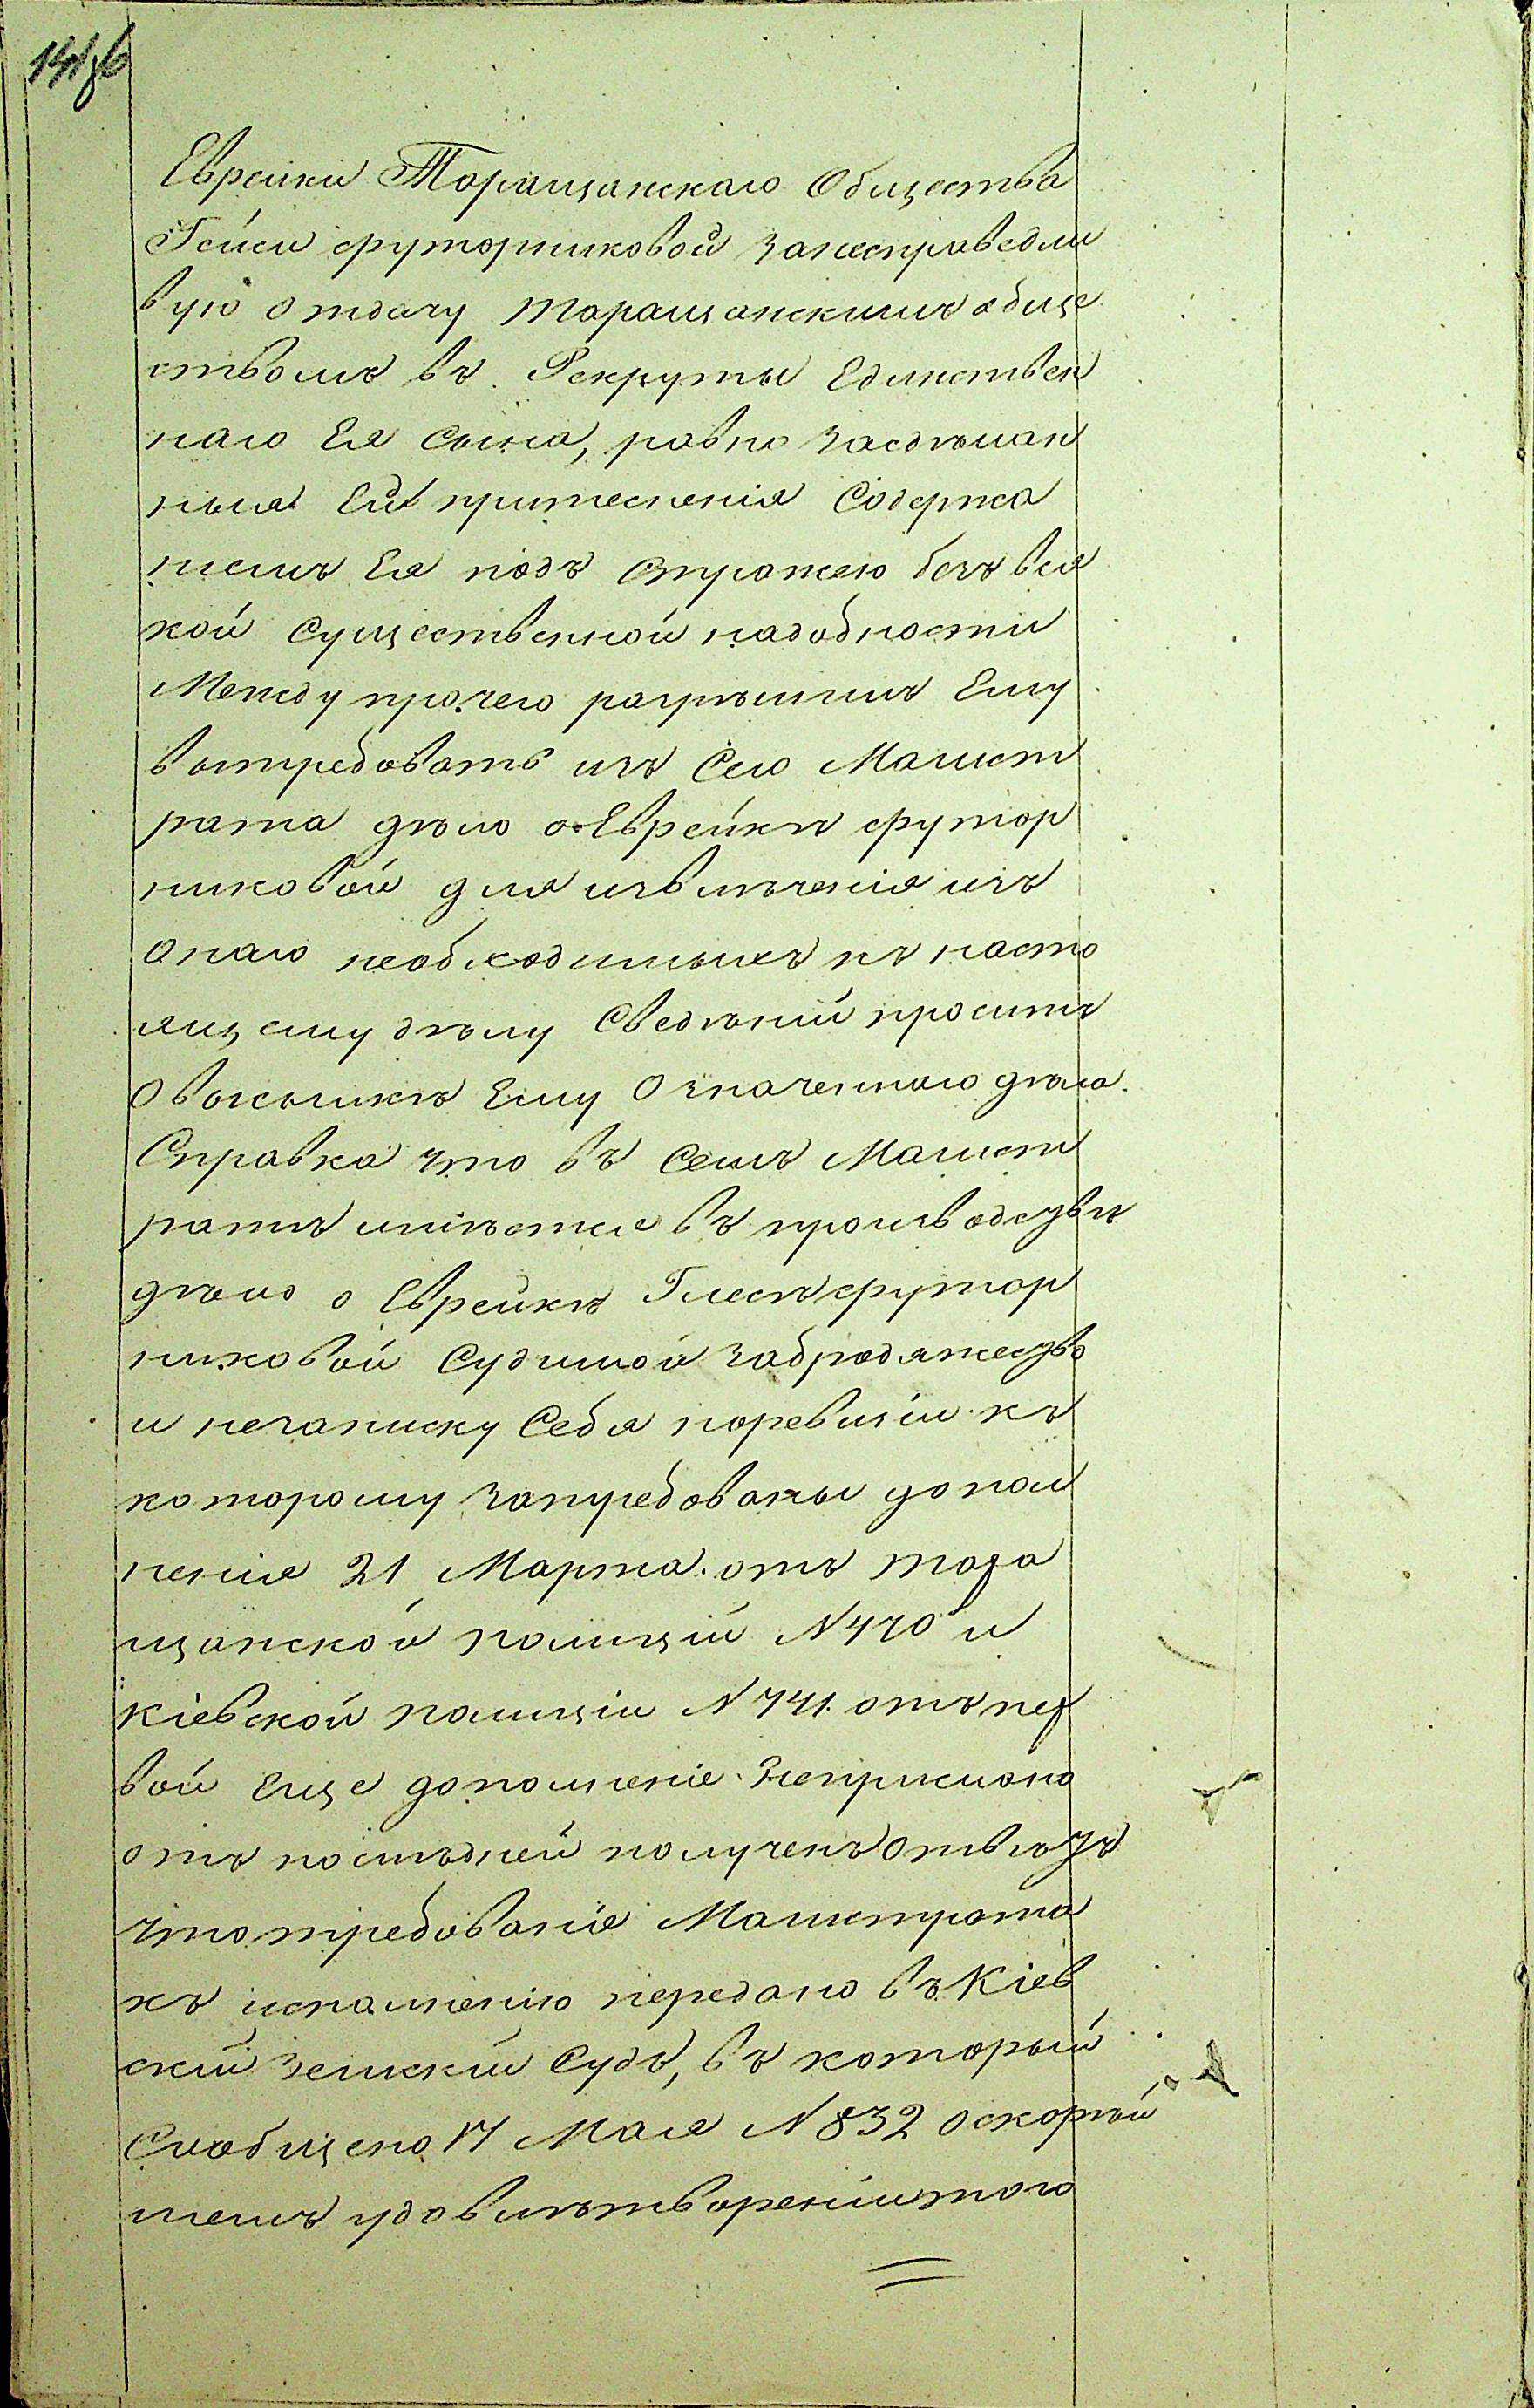 Еврейки Таращанскаго Общества
Гейси Футорниковой занесправедли
вую отдачу таращанскимъ обще
ствомъ въ Рекруты Единствен
наго Ея сына, равно засделан
ныя Ей притеснения Содержа
ниемъ Ея подъ стражею безъ вся
кой Существенной надобности
Между прочего разрешилъ Ему
вытребовать изъ Сего Магист
рата дѣло о Еврейкѣ Футор
никовой для извлечения изъ
онаго необходимыхъ къ насто
ящему дѣлу Сведѣний проситъ
Овысылкѣ Ему Означеннаго дѣла.
Справка что въ Семъ Магист
ратѣ имѣется въ производствѣ
дѣло о Еврейкѣ Гиесѣ Футор
никовой Судимой забродяжество
и незаписку Себя поревизіи къ
которому затребованы допол
ненія 21 Марта отъ тара
щанской полиціи N 470 и
Кіевской полиціи N 741. отъ пер
вой Еще дополненіе Неприслано
отъ послѣдней полученъ Отвѣтъ
что требованіе Магистрата
къ исполненію передано въ Кіев
скій земскій Судъ, въ который
Сообщено 17 Мая N 832 оскорѣй
шемъ удовлѣтвореніи того